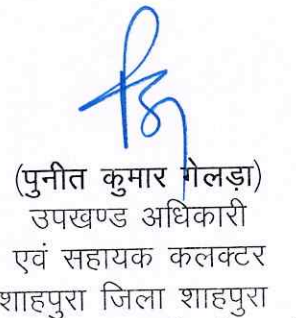 (पुनीत कुमार गेलड़ा)
उपखण्ड अधिकारी
एवं सहायक कलक्टर
शाहपुरा जिला शाहपुरा